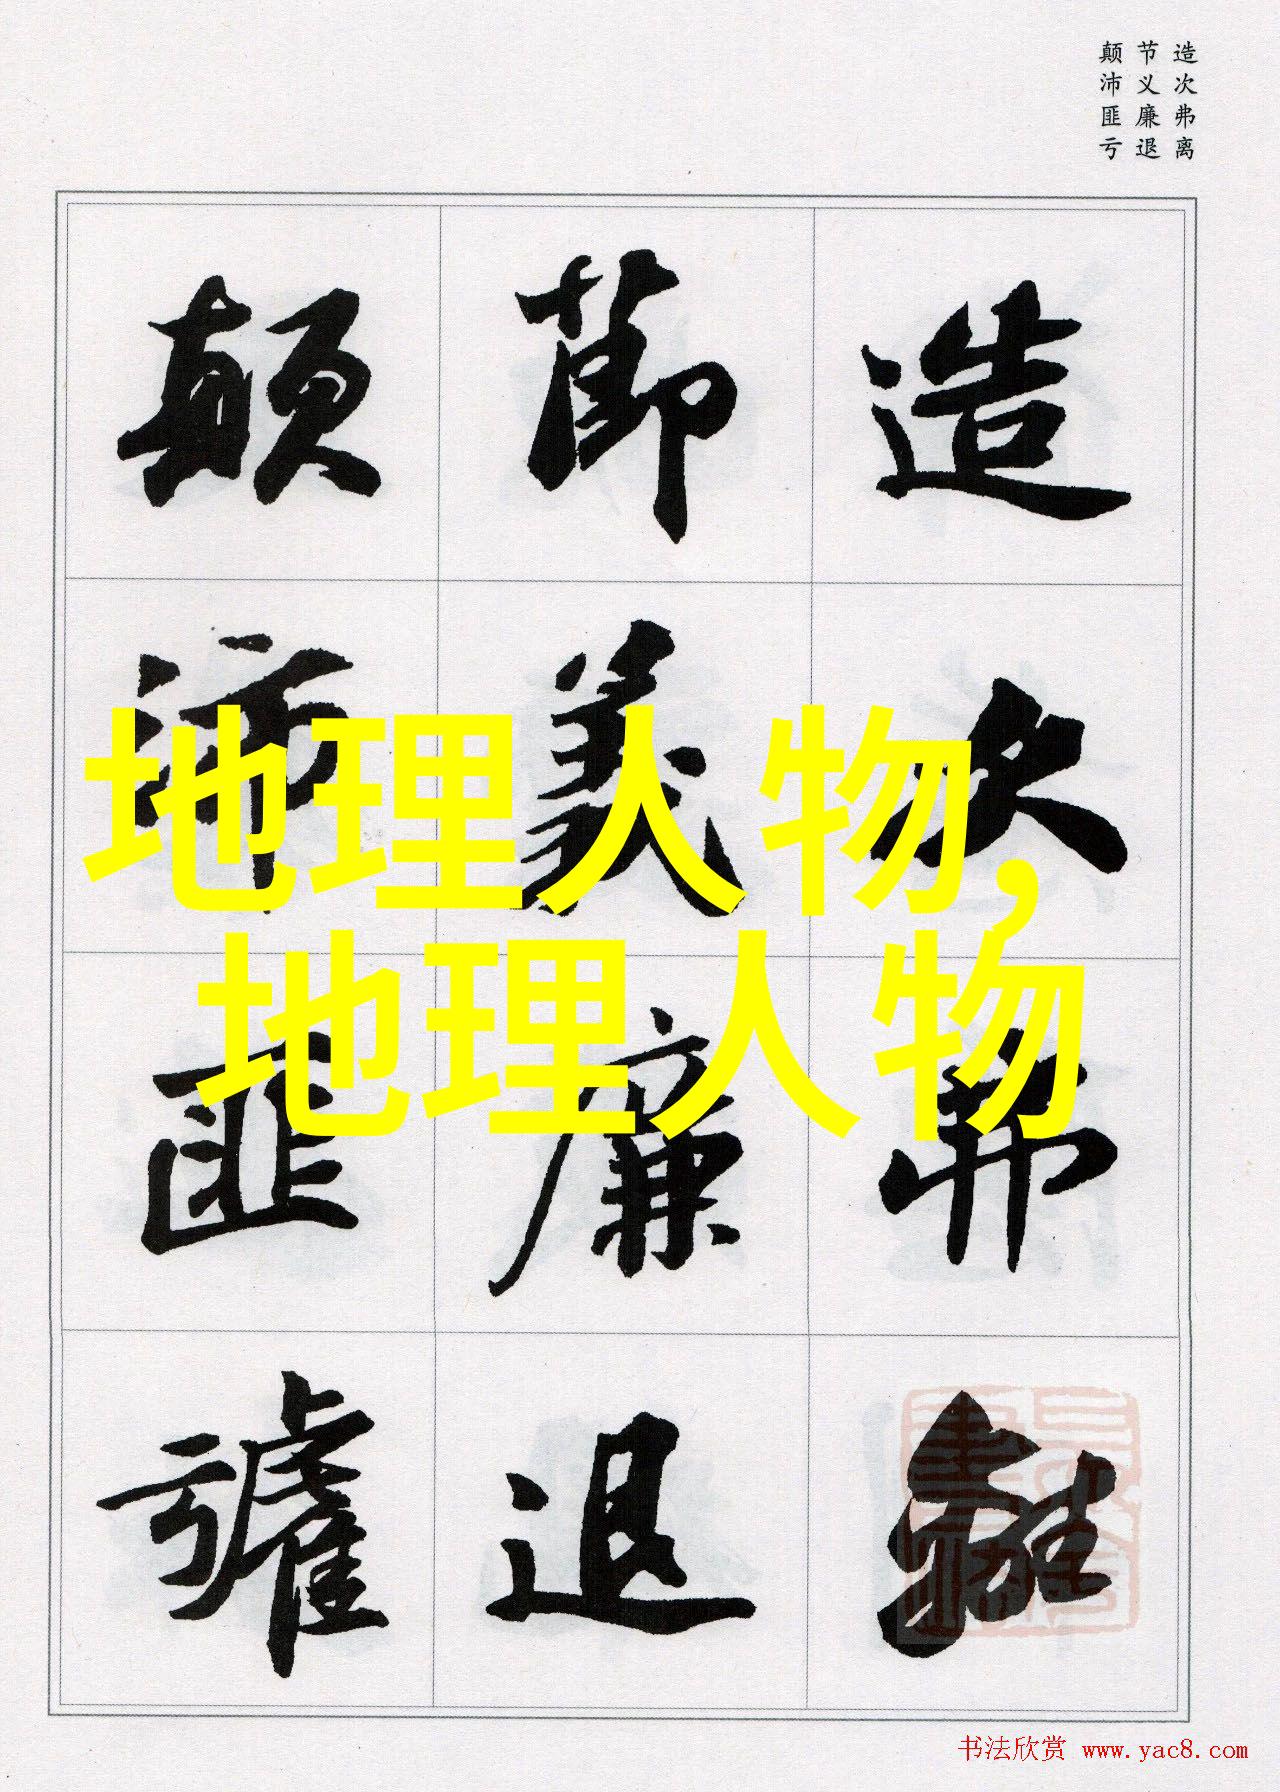 造次弗离
节义廉退
颠沛匪亏
造次弗離
節義廉退
顛沛匪虧
地理人物,
地理人物
书法欣赏 www.yac8.com